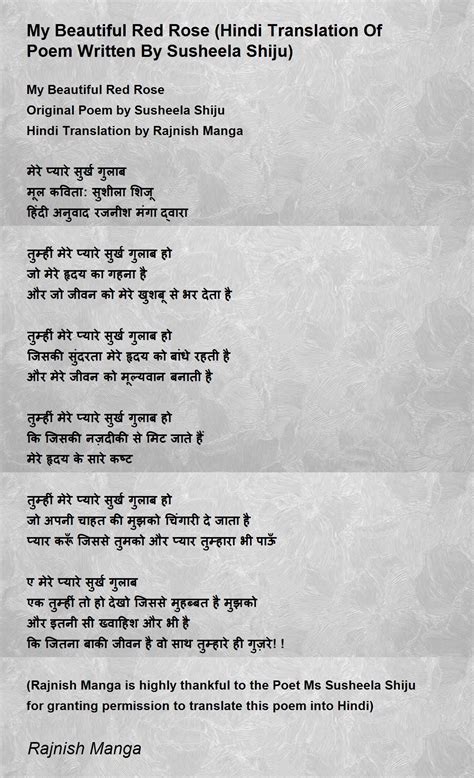 My Beautiful Red Rose (Hindi Translation Of
Poem Written By Susheela Shiju)
My Beautiful Red Rose
Original Poem by Susheela Shiju
Hindi Translation by Rajnish Manga
मेरे प्यारे सुर्ख गुलाब
मूल कविता: सुशीला शिजू
हिंदी अनुवाद रजनीश मंगा द्वारा
तुम्हीं मेरे प्यारे सुर्ख गुलाब हो
जो मेरे हृदय का गहना है
और जो जीवन को मेरे खुशबू से भर देता है
तुम्हीं मेरे प्यारे सुर्ख गुलाब हो
जिसकी सुंदरता मेरे हृदय को बांधे रहती है
और मेरे जीवन को मूल्यवान बनाती है
तुम्हीं मेरे प्यारे सुर्ख गुलाब हो
कि जिसकी नज़दीकी से मिट जाते हैं
मेरे हृदय के सारे कष्ट
तुम्हीं मेरे प्यारे सुर्ख गुलाब हो
जो अपनी चाहत की मुझको चिंगारी दे जाता है
प्यार करूँ जिससे तुमको और प्यार तुम्हारा भी पाऊँ
ए मेरे प्यारे सुर्ख गुलाब
एक तुम्हीं तो हो देखो जिससे मुहब्बत है मुझको
और इतनी सी ख्वाहिश और भी है
कि जितना बाकी जीवन है वो साथ तुम्हारे ही गुज़रे! !
(Rajnish Manga is highly thankful to the Poet Ms Susheela Shiju
for granting permission to translate this poem into Hindi)
Rajnish Manga